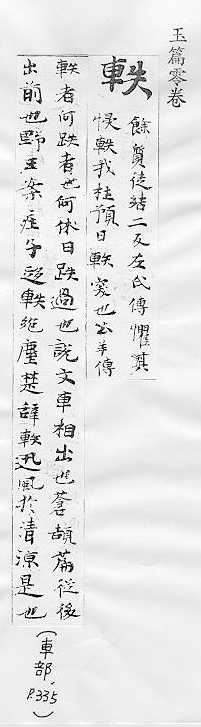 玉篇零卷
軼
餘質徒結二反左氏傳懼其
侵軼我杜預曰軼突也公羊傳
軼者何跌者也何休曰跌過也說文車相出也蒼頡篇從後
出前也野王案庄子超軼絕塵楚辝軼迅風於清源是也
(車部, P.335)